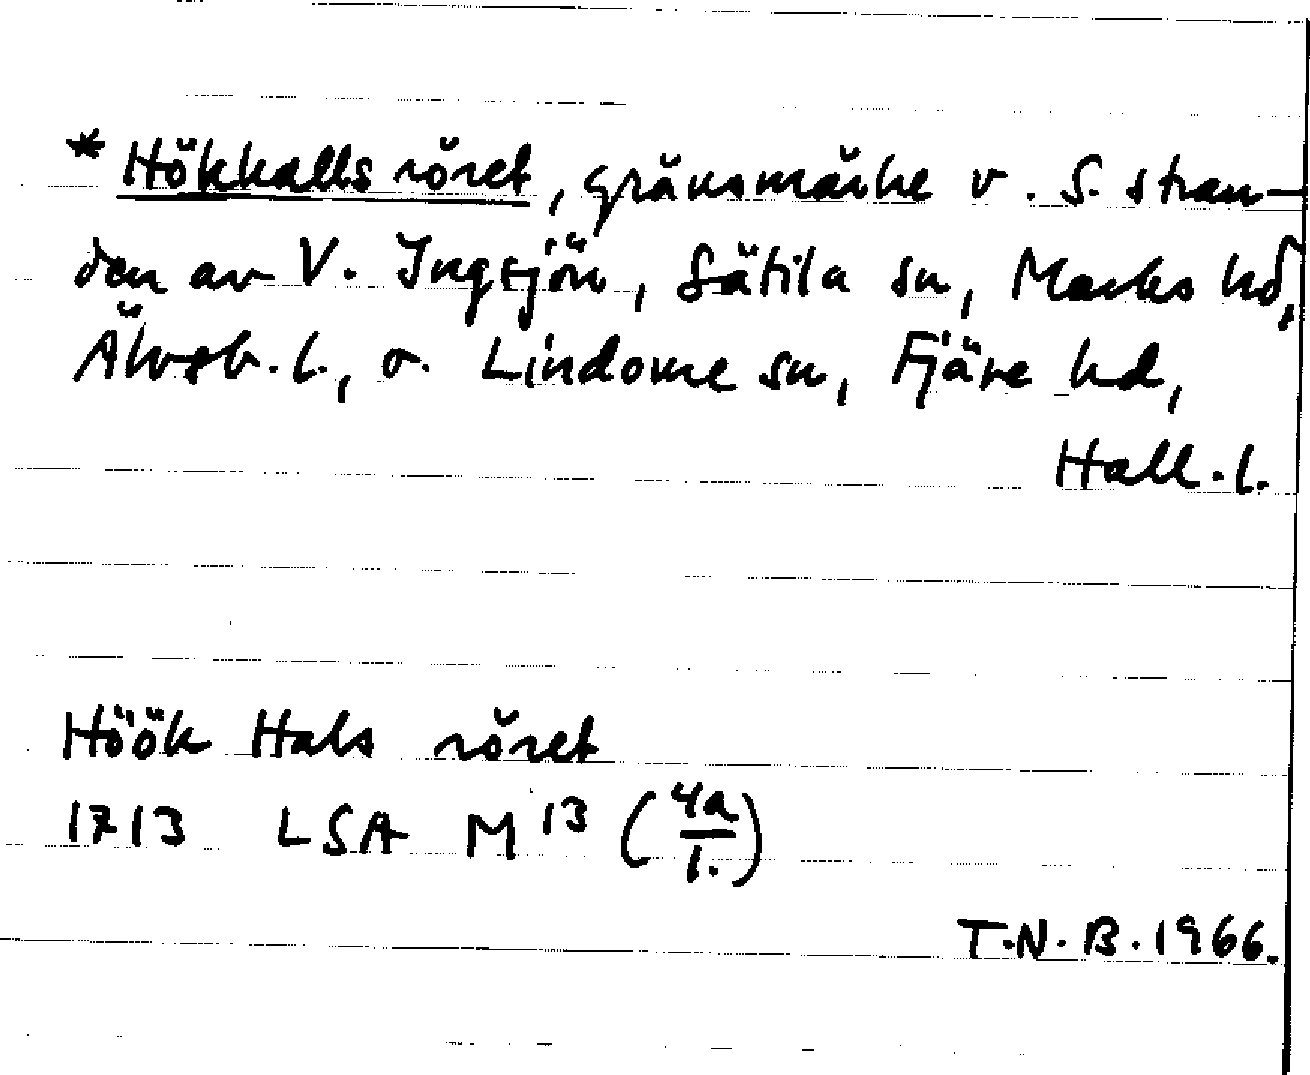 * Hökhalls röret, gränsmärke v. S. stran-
den av V. Ingsjön, Sätila sn, Marks hd,
Älvsb. l., o. Lindome sn, Fjäre hd,
Hall. l.
Höök Hals röret
1713 LSA M 13 (4a/1.)
T.N.B. 1966.